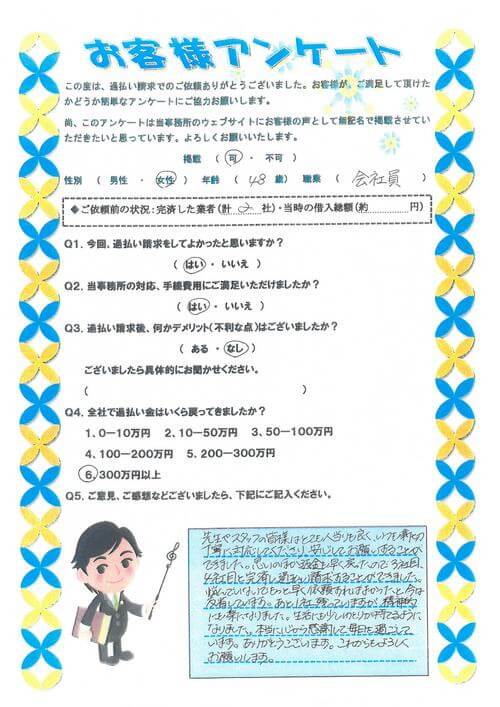 お客様アンケート
この度は、過払い請求でのご依頼ありがとうございました。お客様が、ご満足して頂けた
かどうか簡単なアンケートにご協力お願いします。
尚、このアンケートは当事務所のウェブサイトにお客様の声として無記名で掲載させてい
ただきたいと思っています。よろしくお願いいたします。
掲載 ( 可 ・ 不可 )
性別 ( 男性 ・ 女性 ) 年齢 ( 48 歳) 職業 ( 会社員 )
◆ご依頼前の状況:完済した業者(計 2 社)・当時の借入総額(約 円)
Q1. 今回、過払い請求をしてよかったと思いますか?
( はい ・ いいえ )
Q2. 当事務所の対応、手続費用にご満足いただけましたか?
( はい ・ いいえ )
Q3. 過払い請求後、何かデメリット(不利な点)はございましたか?
( ある ・ なし )
ございましたら具体的にお聞かせください。
( )
Q4. 全社で過払い金はいくら戻ってきましたか?
1、0-10万円 2、10-50万円 3、50-100万円
4、100-200万円 5、200-300万円
6、300万円以上
Q5. ご意見、ご感想などございましたら、下記にご記入ください。
先生やスタッフの皆様はとても人当りも良く、いつも親切
丁寧に対応してくださり、安心してお願いすることが
できました。思いのほか返金も早く戻ったので、3社目、
4社目と完済し過払い請求することができました。
悩んでいないでもっと早く依頼すればよかったと今は
反省しています。あと1社残っていますが、精神的
にも楽になりました。生活にも少しゆとりが持てるように
なりました。本当に心から感謝して毎日を過ごして
います。ありがとうございます。これからもよろしく
お願いします。